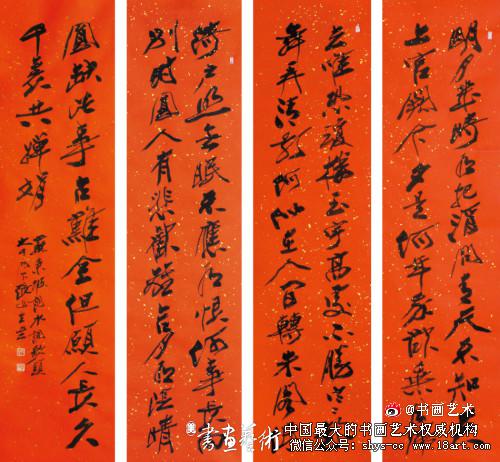 明月幾時有把酒問青天不知
上宮闕今夕是何年我欲乘風
去唯恐瓊樓玉宇高處不勝寒
舞弄清影何似在人間轉朱閣
戶照無眠不應有恨何事長
別時圓人有悲歡離合月有陰晴
圓缺此事古難全但願人長久
千里共嬋娟
書畫藝術
@书画艺术
中国最大的书画艺术权威机构
微信公众号: shys-cc www.shys-cc.com